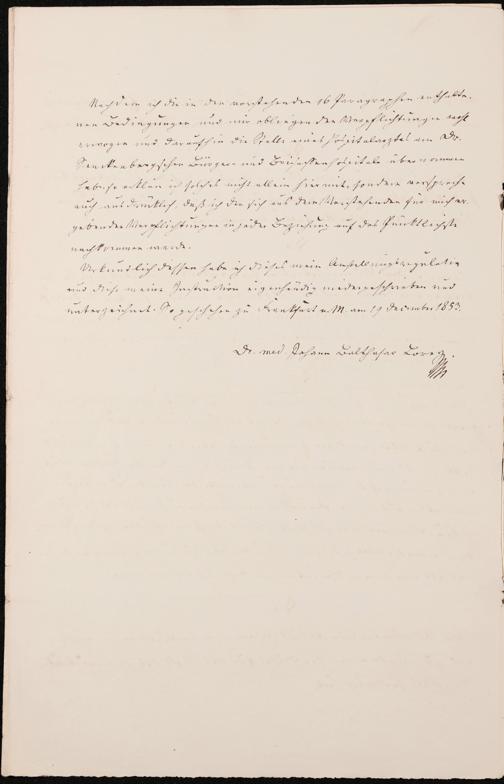 Nachdem ich die in den vorstehenden 16 Paragraphen enthalte-
nen Bedingungen und mir obliegenden Verpflichtungen wohl
erwogen und daraufhin die Stelle eines Hospitalarztes am Dr.
Senckenbergschen Bürger und Beisassenhospitale übernommen
habe, so erkläre ich solches nicht allein hiermit, sondern verspreche
auch ausdrücklich, daß ich den sich aus dem Vorstehenden für mich er-
gebenden Verpflichtungen in jeder Beziehung auf das Pünktlichste
nachkommen werde.
Urkundlich dessen habe ich dieses mein Anstellungsregulativ
und diese meine Instruction eigenhändig niedergeschrieben und
unterzeichnet. So geschehen zu Frankfurt a. M. am 19 December 1853.
Dr. med Johann Balthasar Lorey.